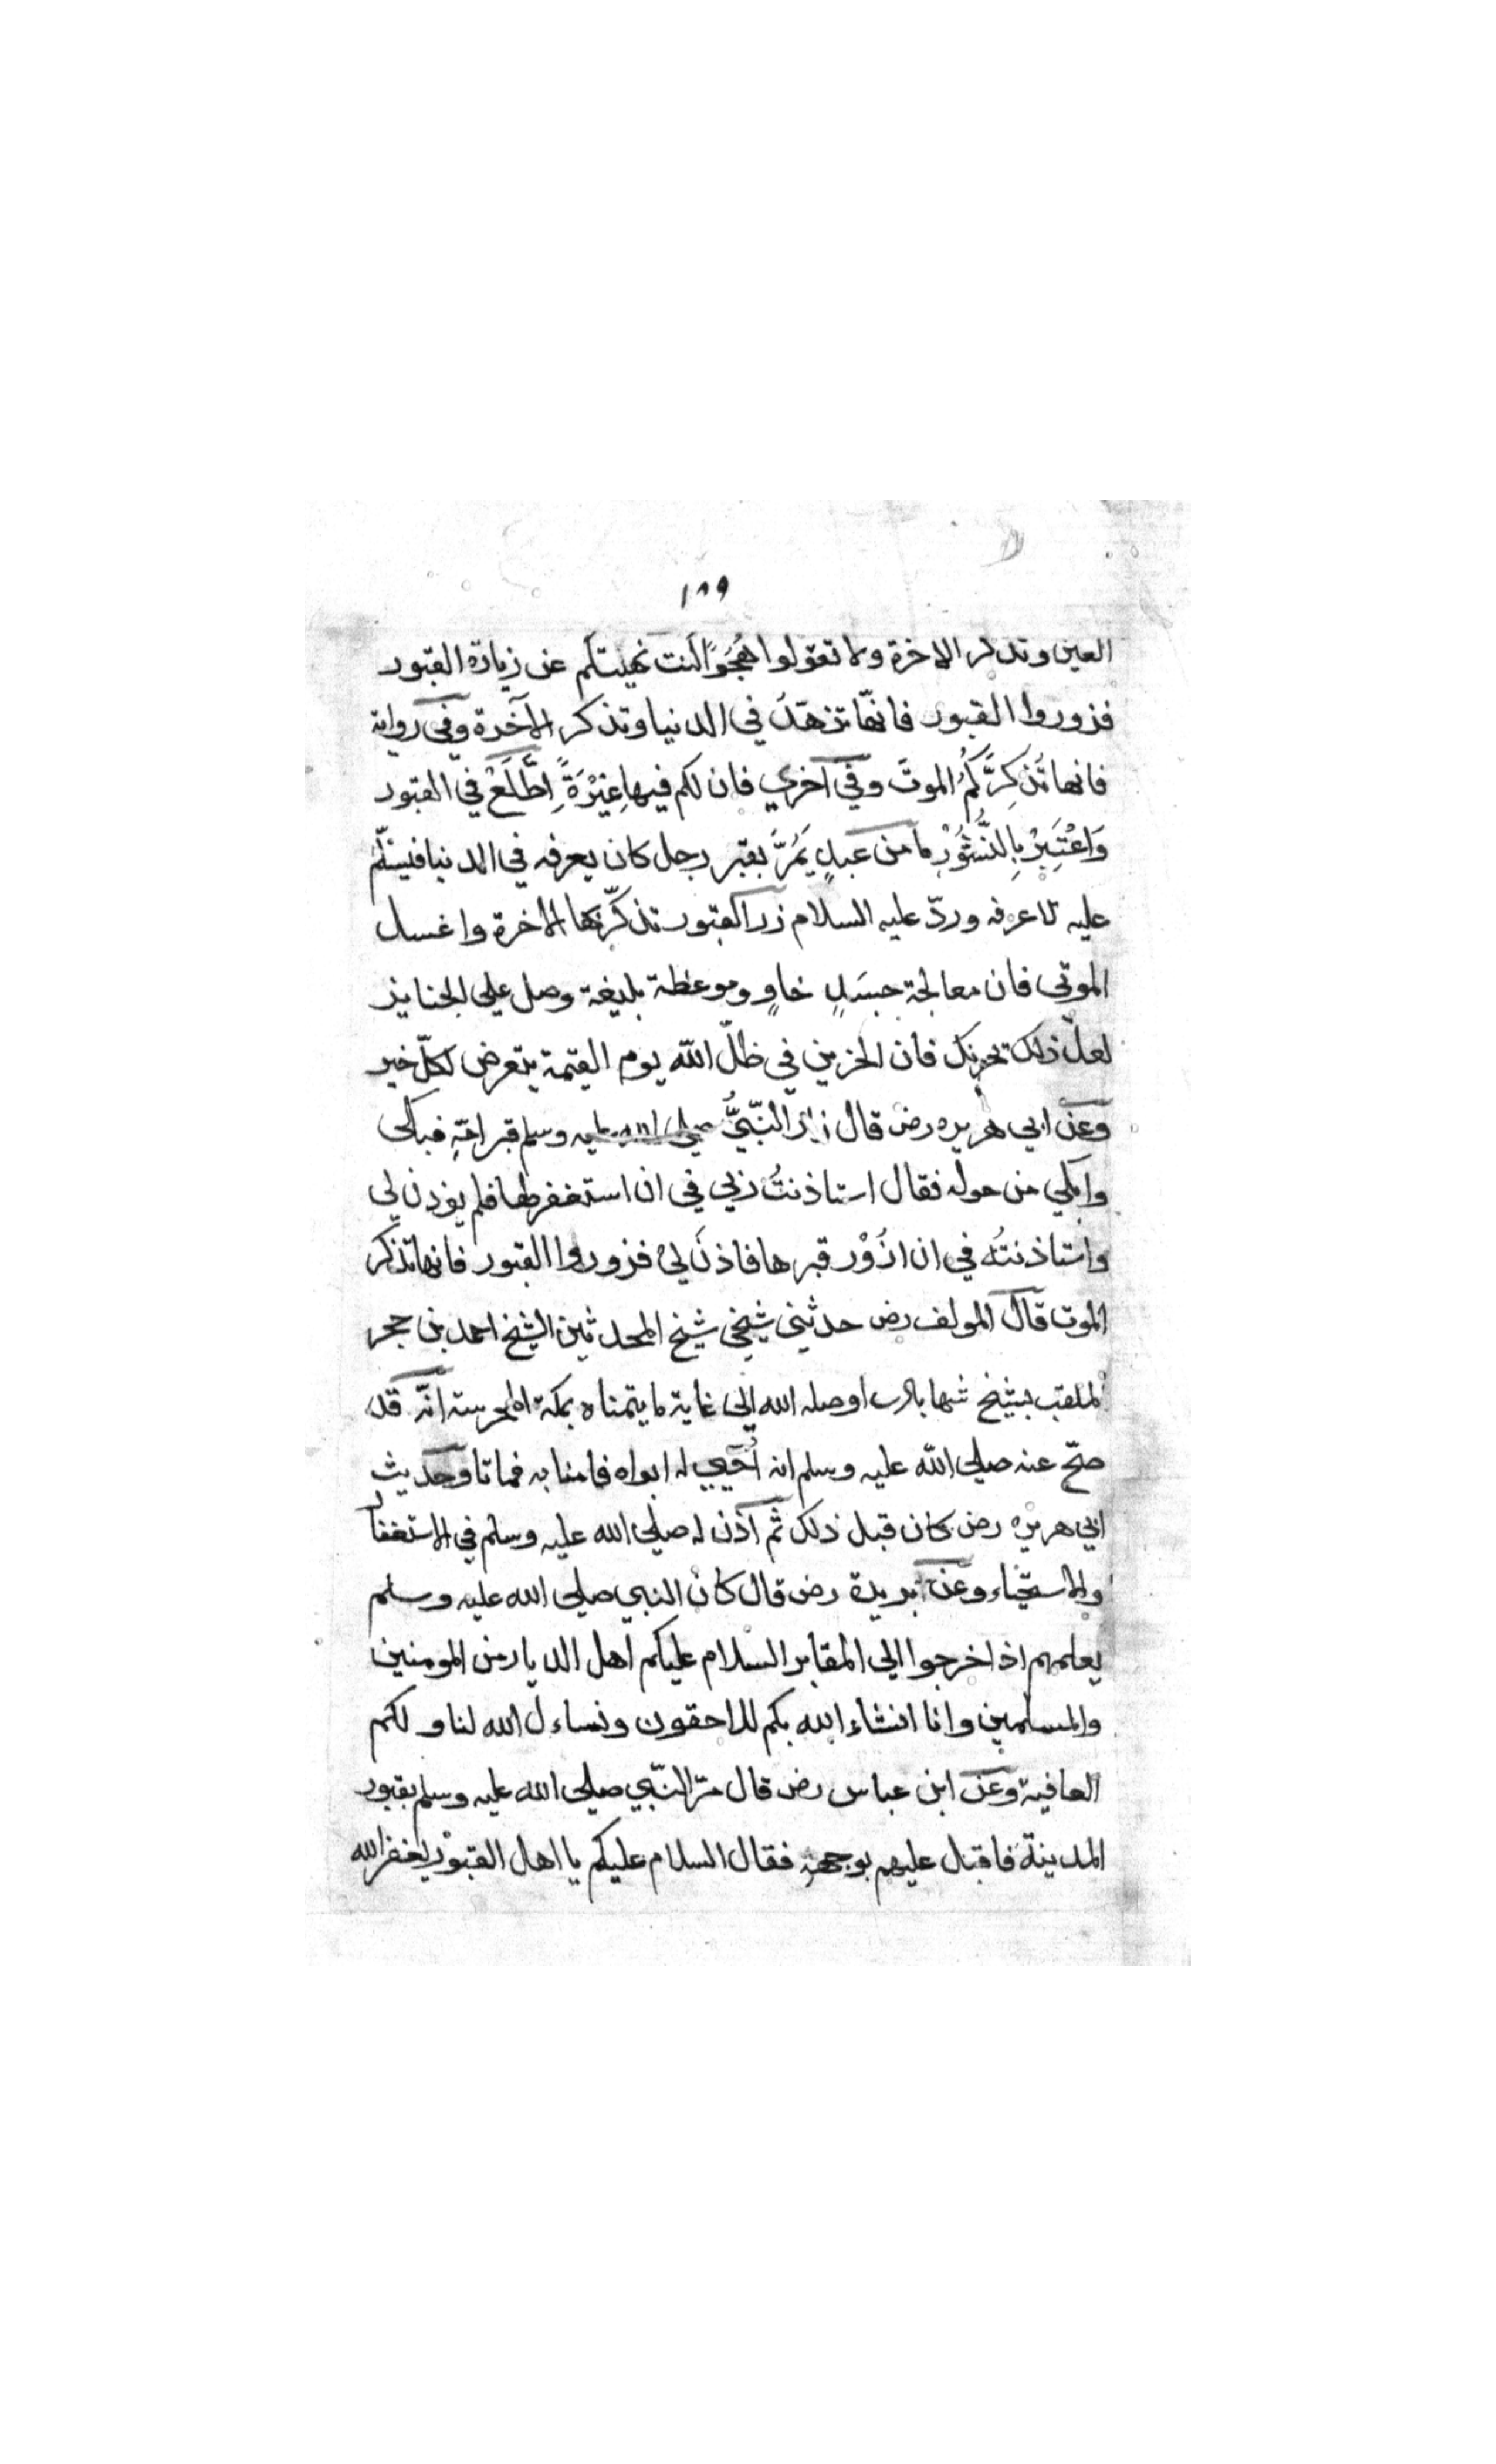 ١٨٩
العين وتذكر الاخرة ولا تقولوا هُجُوًا كنت نهيتكم عن زيارة القبور
فزوروا القبور فانهّا تزهّدُ في الدنيا وتذكر الآخرة وفي رواية
فانها تُذكِرَّكُمُ الموتَ وفي آخري فان لكم فيها عِبْرَةً اِطَّلَعْ في القبور
وَاعْتَبِرْ بِالنُّشُوْرِ ما من عبدٍ يَمُرُّ بقبر رجل كان يعرفه في الدنيا فيسلّم
عليه الا عرفه وردّ عليه السلام زر القبور تذكّر بها الاخرة واغسل
الموتي فان معالجة جسَدٍ خاوٍ وموعظة بليغة وصل علي الجنايز
لعلّ ذلك تحزنك فان الحزين في ظلّ الله يوم القيمة يتعرض لكلّ خير
وعن ابي هريره رض قال زار النّبيُّ صلي الله عليه وسلم قبر امّهِ فبكي
وابكي من حوله فقال استاذنتُ ربي في ان استغفر لها فلم يوذن لي
واستاذنتُه في ان ازُوْر قبرها فاذنَ ليْ فزوروا القبور فانها تذكر
الموت قال المولف رض حدثني شيخي شيخ المحدثين الشيخ احمد بن حجر
الملقب بشيخ شهاب اوصله الله الي غاية ما يتمناه بمكة المحرسة انّه قد
صحّ عنه صلي الله عليه وسلم انه اُحْيِيَ له ابواه فامنا به فماتا وحديث
ابي هريره رض كان قبل ذلك ثم اذن له صلي الله عليه وسلم في الاستغفار
والاستحياء وعن بريدة رض قال كان النبي صلي الله عليه وسلم
يعلمهم اذا خرجوا الي المقابر السلام عليكم اهل الديار من المومنين
والمسلمين وانا انشاء الله بكم للاحقون ونساءل الله لنا ولكم
العافية وعن ابن عباس رض قال مرّ النّبي صلي الله عليه وسلم بقبور
المدينة فاقبل عليهم بوجهه فقال السلام عليكم يا اهل القبوْر يغفر الله